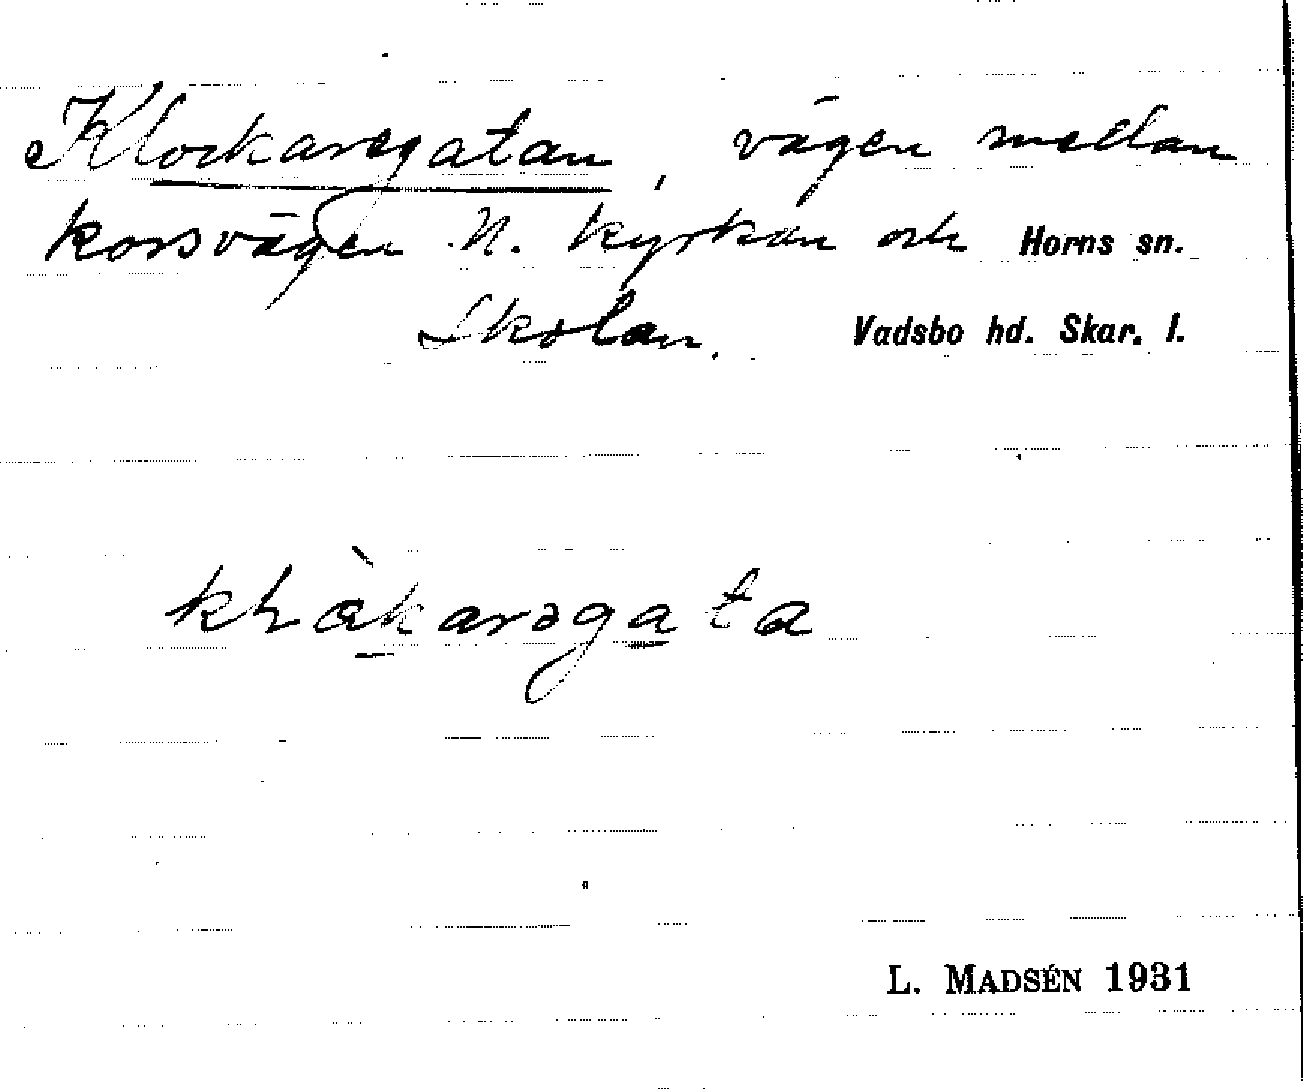 Klockaregatan, vägen mellan
korsvägen N. kyrkan och Horns sn.
Skolan. Vadsbo hd. Skar. l.
kḷàkarəgata
L. MADSÉN 1931